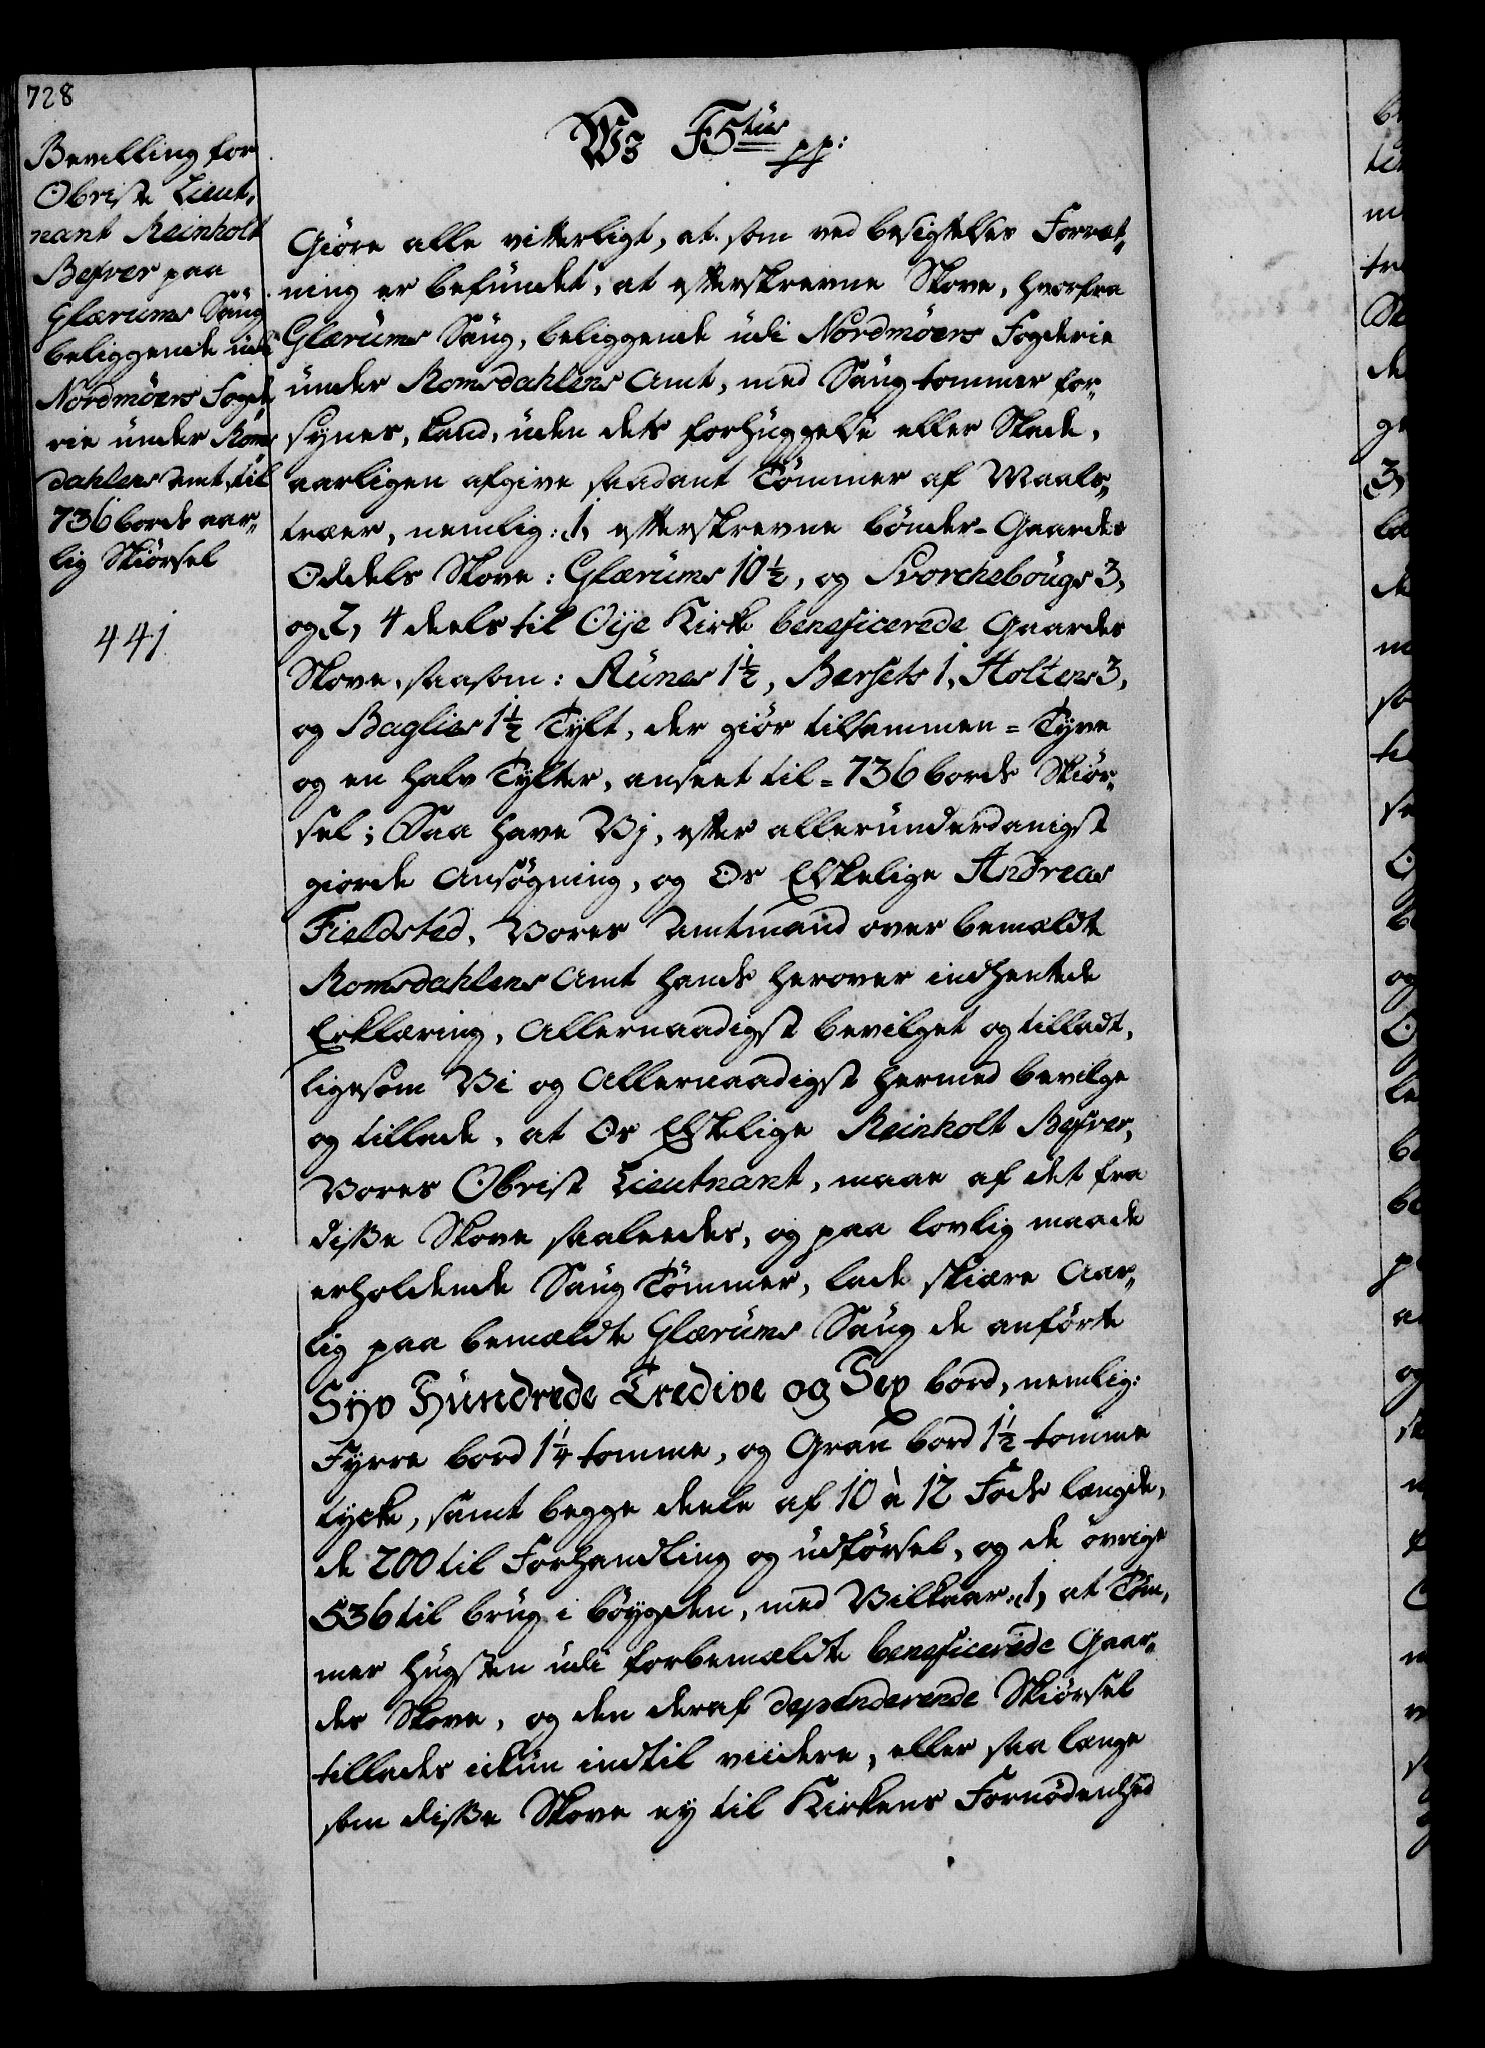 728
Bevilling for
Obriste Lieut,
nant Reinholt
Besver paa
Glærums Saug
beliggende udi
Nordmöers Foged,
rie under Roms
dahlens Amt, til
736 borde aar,,
lig Skiörsel
441
W3 F5tus pp:
Giöre alle vitterligt, at som ved besigtelses Forret,,
ning er befundet, at efterskrevne Skove, hvorfra
Glærums Saug, beliggende udi Nordmöers Fogderie
under Romsdahlens Amt, med Saug tommer for,,
synes, kand, uden dets forhuggelse eller Skade,
aarligen afgive saadant Tömmer af Maals,,
træer, nemlig: 1, efterskrevne bönder-Gaardes
Oddels Skove: Glærums 10½, og Svorchebougs 3,
og 2, 4 deels til Öije Kirke beneficerede Gaardes
Skove, saasom: Runes 1½, Bersets 1, Holtens 3,
og Baglies 1½ Tylt, der giör tilsammen = Tyve
og en halv Tylter, anseet til = 736 borde Skiör,,
sel; Saa have Vj, efter allerunderdanigst
giorde Ansögning, og Os Elskelige Andreas
Fieldsted, Vores Amtmand over bemældte
Romsdahlens Amt hands herover indhentede
Erklæring, Allernaadigst bevilget og tilladt,
ligesom Vi og Allernaadigst hermed bevilge
og tillade, at Os Elskelige Reinholt Besver,
Vores Obrist Lieutnant, maae af det fra
disse Skove saaleedes, og paa lovlig maade
erholdende Saug Tömmer, lade skiære Aar,,
lig paa bemældte Glærums Saug de anförte
Syv Hundrede Tredive og Sex bord, nemlig:
Fyrre bord 1¼ tomme, og Gran bord 1½ tomme
tycke, samt begge deele af 10 à 12 Fods længde,
de 200 til Forhandling og udförsel, og de övrige
536 til brug i böygden, med Vilkaar: 1, at Töm,
mer hugsten udi forbemældte beneficerede Gaar,,
des Skove, og den deraf dependerende Skiörsel
tillades ickun indtil viidere, eller saa længe
som disse Skove ey til Kirkens Fornödenhed